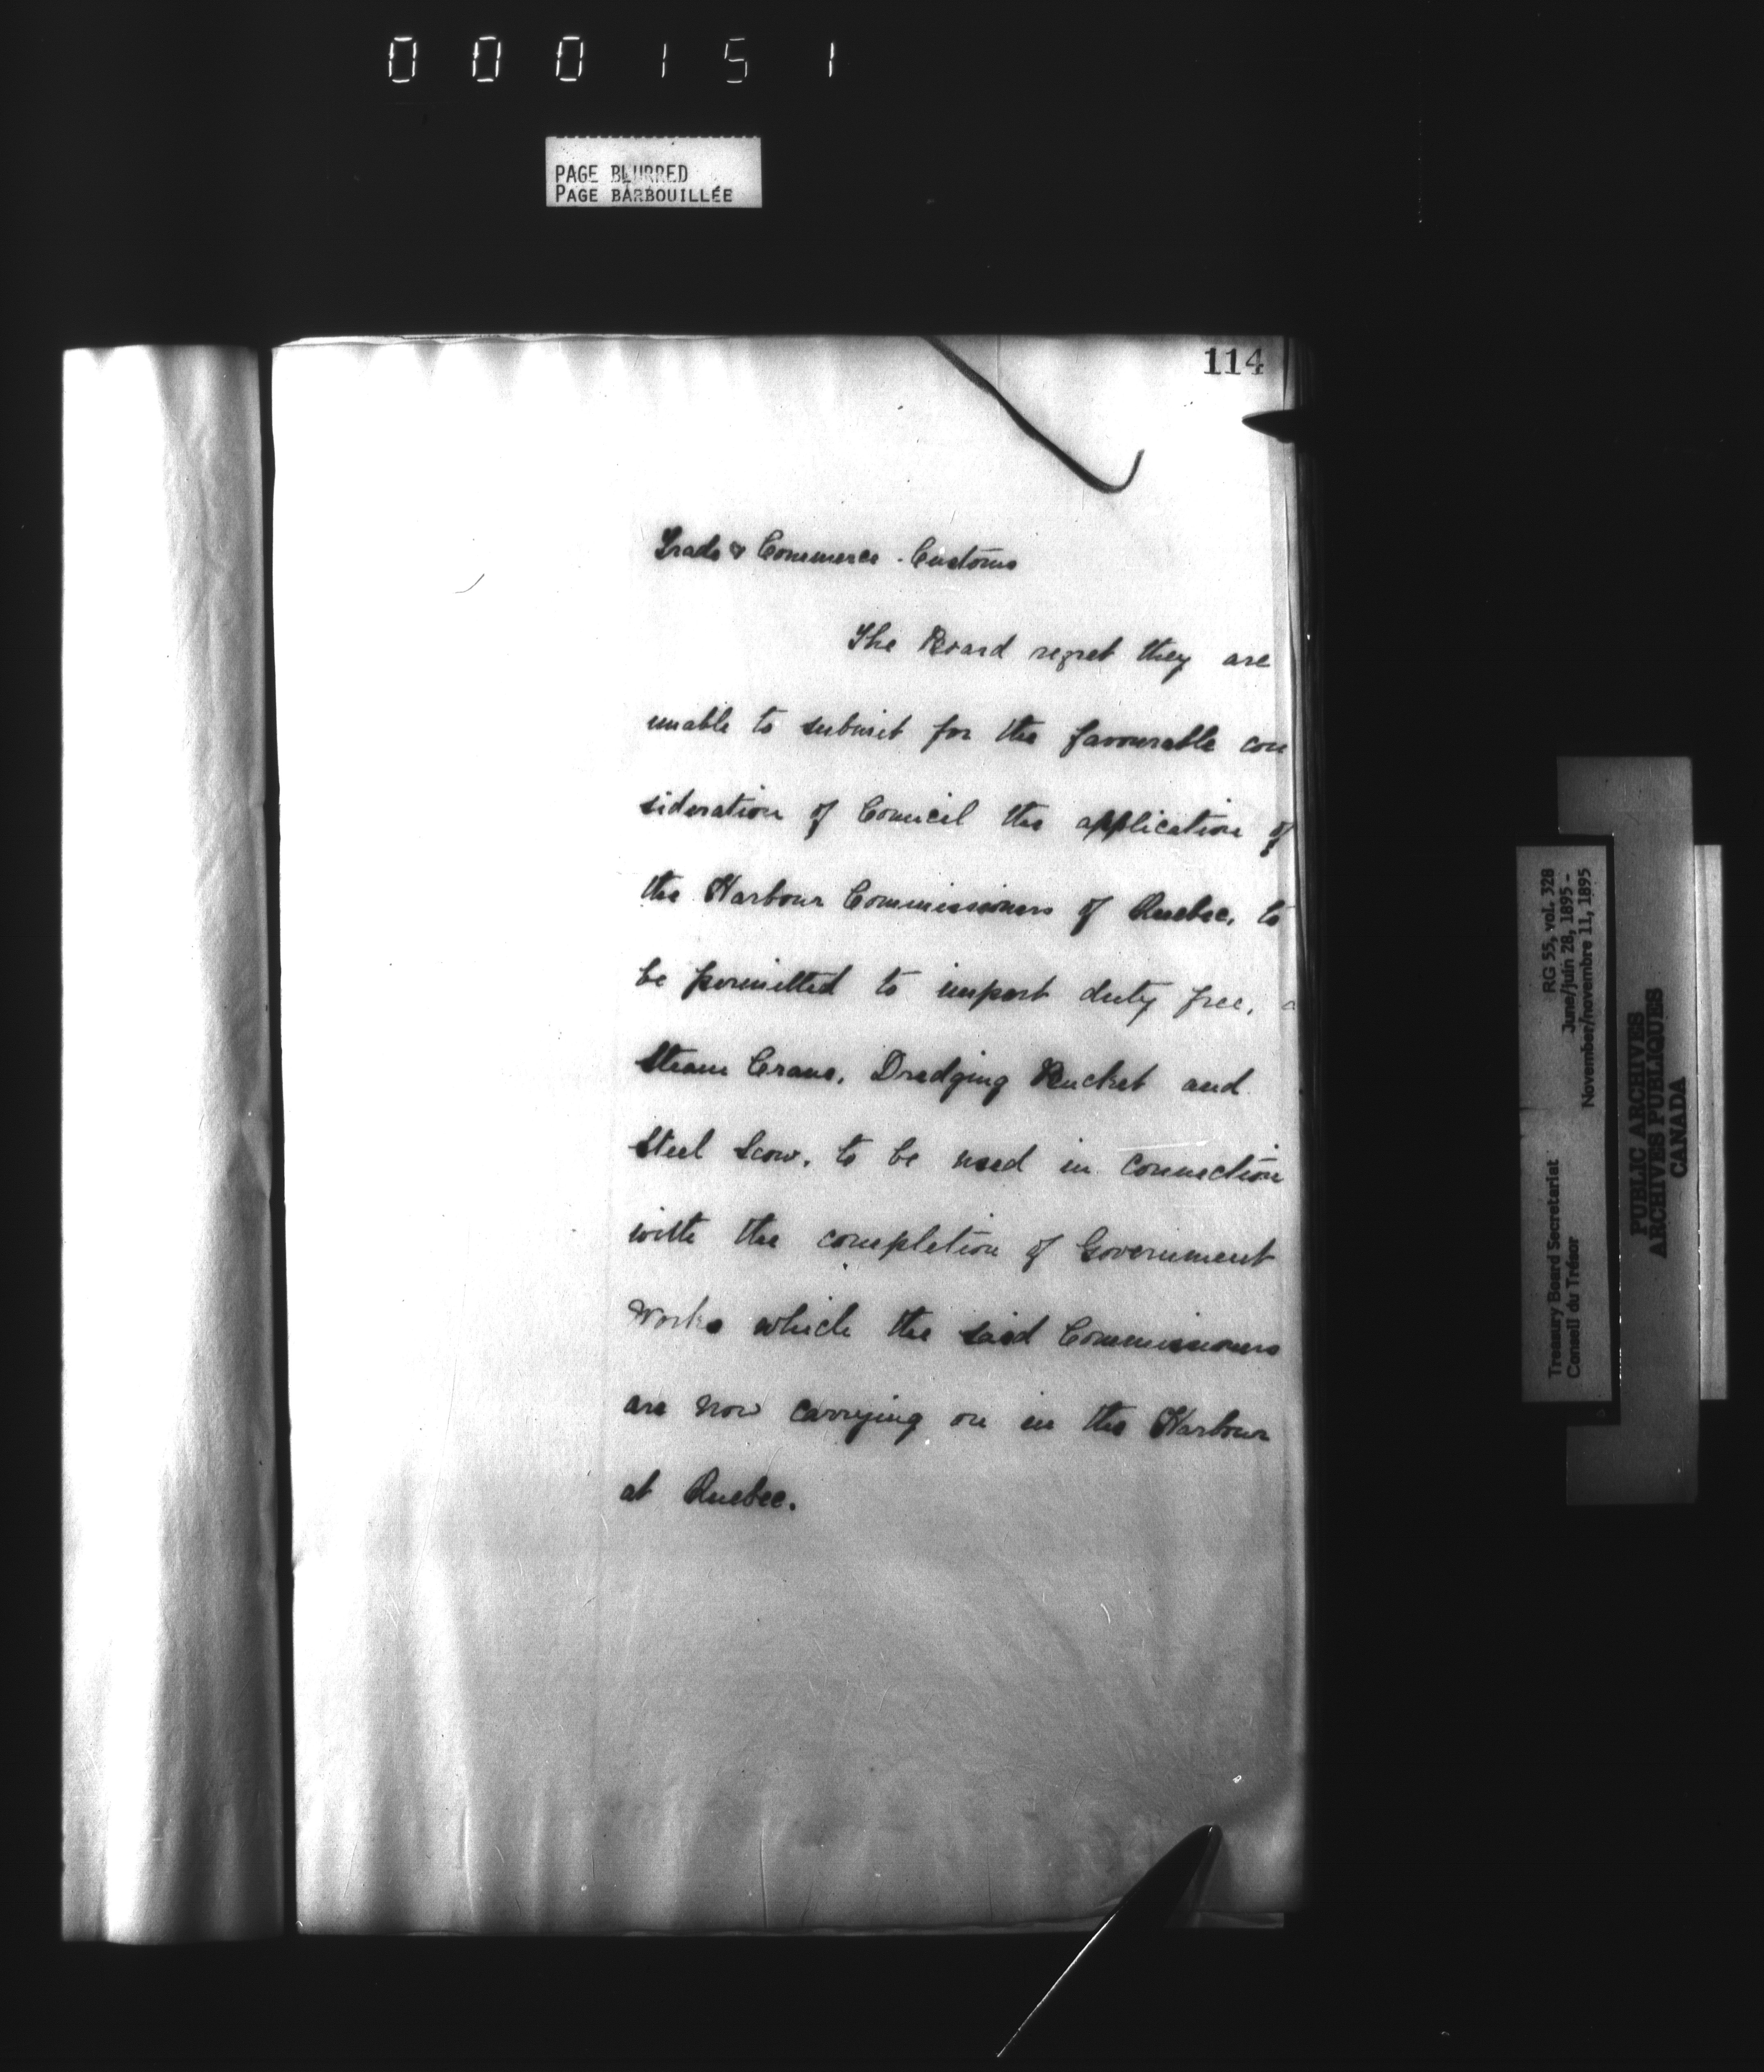 000151
PAGE BLURRED
PAGE BARBOUILLÉE
114
Trade & Commerce - Customs
The Board regret they are
unable to submit for the favourable con
sideration of Council the application of
the Harbour Commissioners of Quebec, to
be permitted to import duty free, a
Steam Crane, Dredging Bucket and
Steel Scow, to be used in connection
with the completion of Government
Works which the said Commissioners
are now carrying on in the Harbour
at Quebec.
Treasury Board Secretariat RG 55, vol. 328
Conseil du Trésor June/juin 28, 1895 -
November/novembre 11, 1895
PUBLIC ARCHIVES
ARCHIVES PUBLIQUES
CANADA